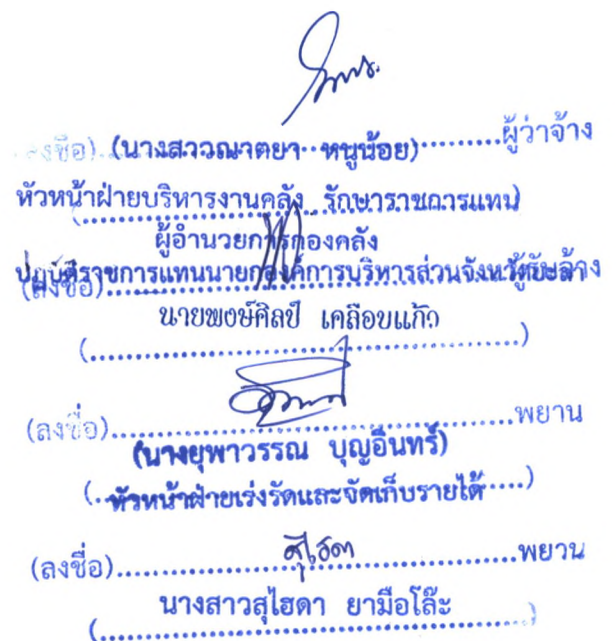 (ลงชื่อ) (นางสาวณาตยา หนูน้อย)..........ผู้ว่าจ้าง
หัวหน้าฝ่ายบริหารงานคลัง รักษาราชการแทน
(..........)
ผู้อำนวยการกองคลัง
ปฏิบัติราชการแทนนายกองค์การบริหารส่วนจังหวัดยะลา
(ลงชื่อ)..........ผู้รับจ้าง
นายพงษ์ศิลป์ เคลือบแก้ว
(..........)
(ลงชื่อ)..........พยาน
(นางยุพาวรรณ บุญอินทร์)
(..หัวหน้าฝ่ายเร่งรัดและจัดเก็บรายได้.....)
(ลงชื่อ)..........สุไฮดา..........พยาน
นางสาวสุไฮดา ยามือโล๊ะ
(..........)